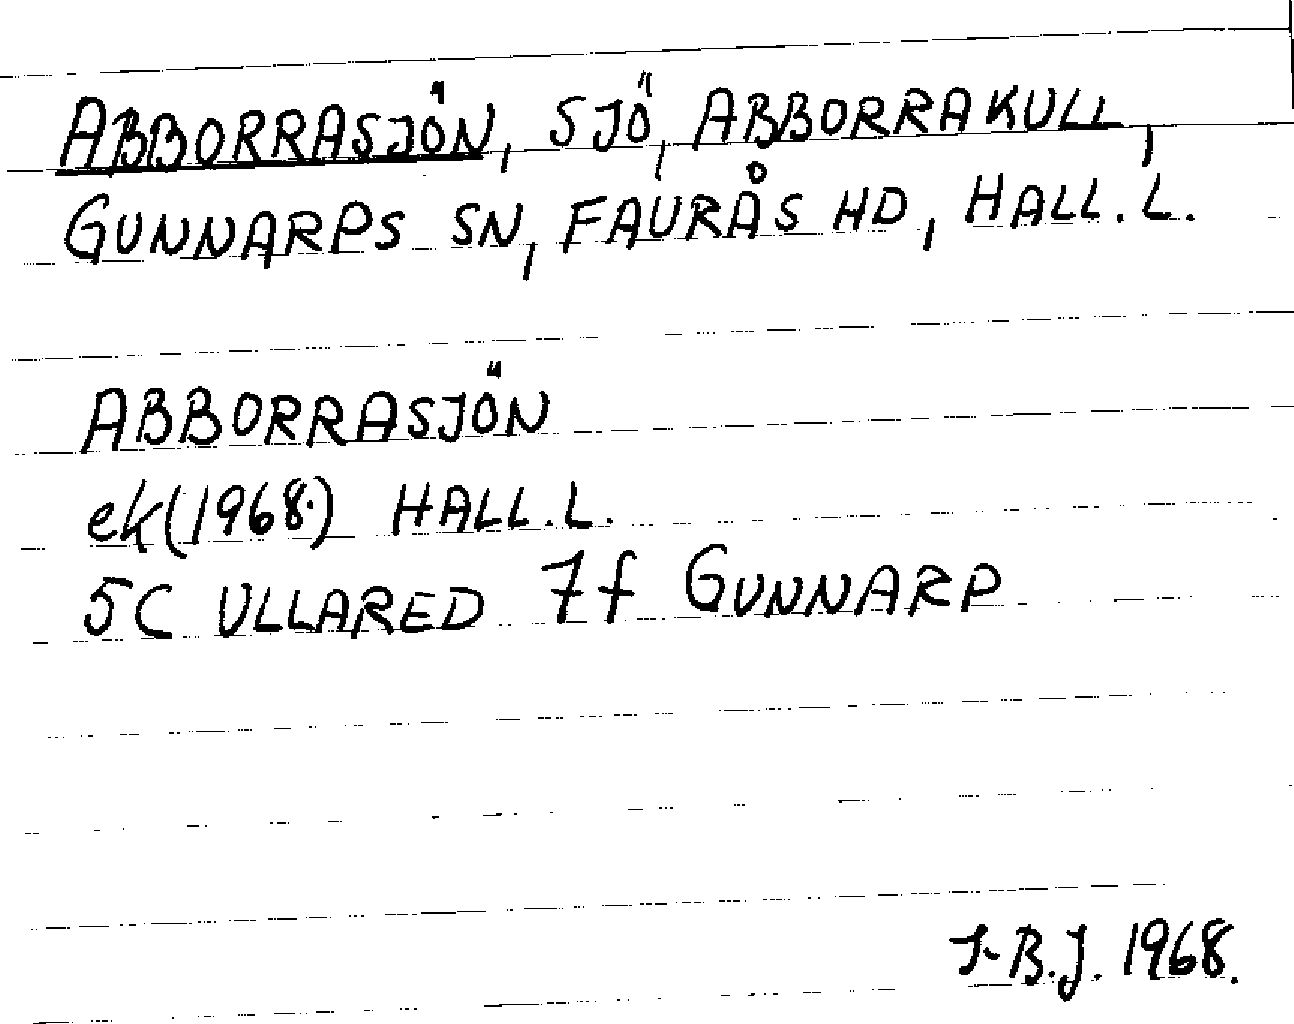 ABBORRASJÖN, SJÖ, ABBORRAKULL,
GUNNARPS SN, FAURÅS HD, HALL. L.
ABBORRASJÖN
ek (1968.) HALL. L.
5C ULLARED 7f GUNNARP
J-B.J. 1968.